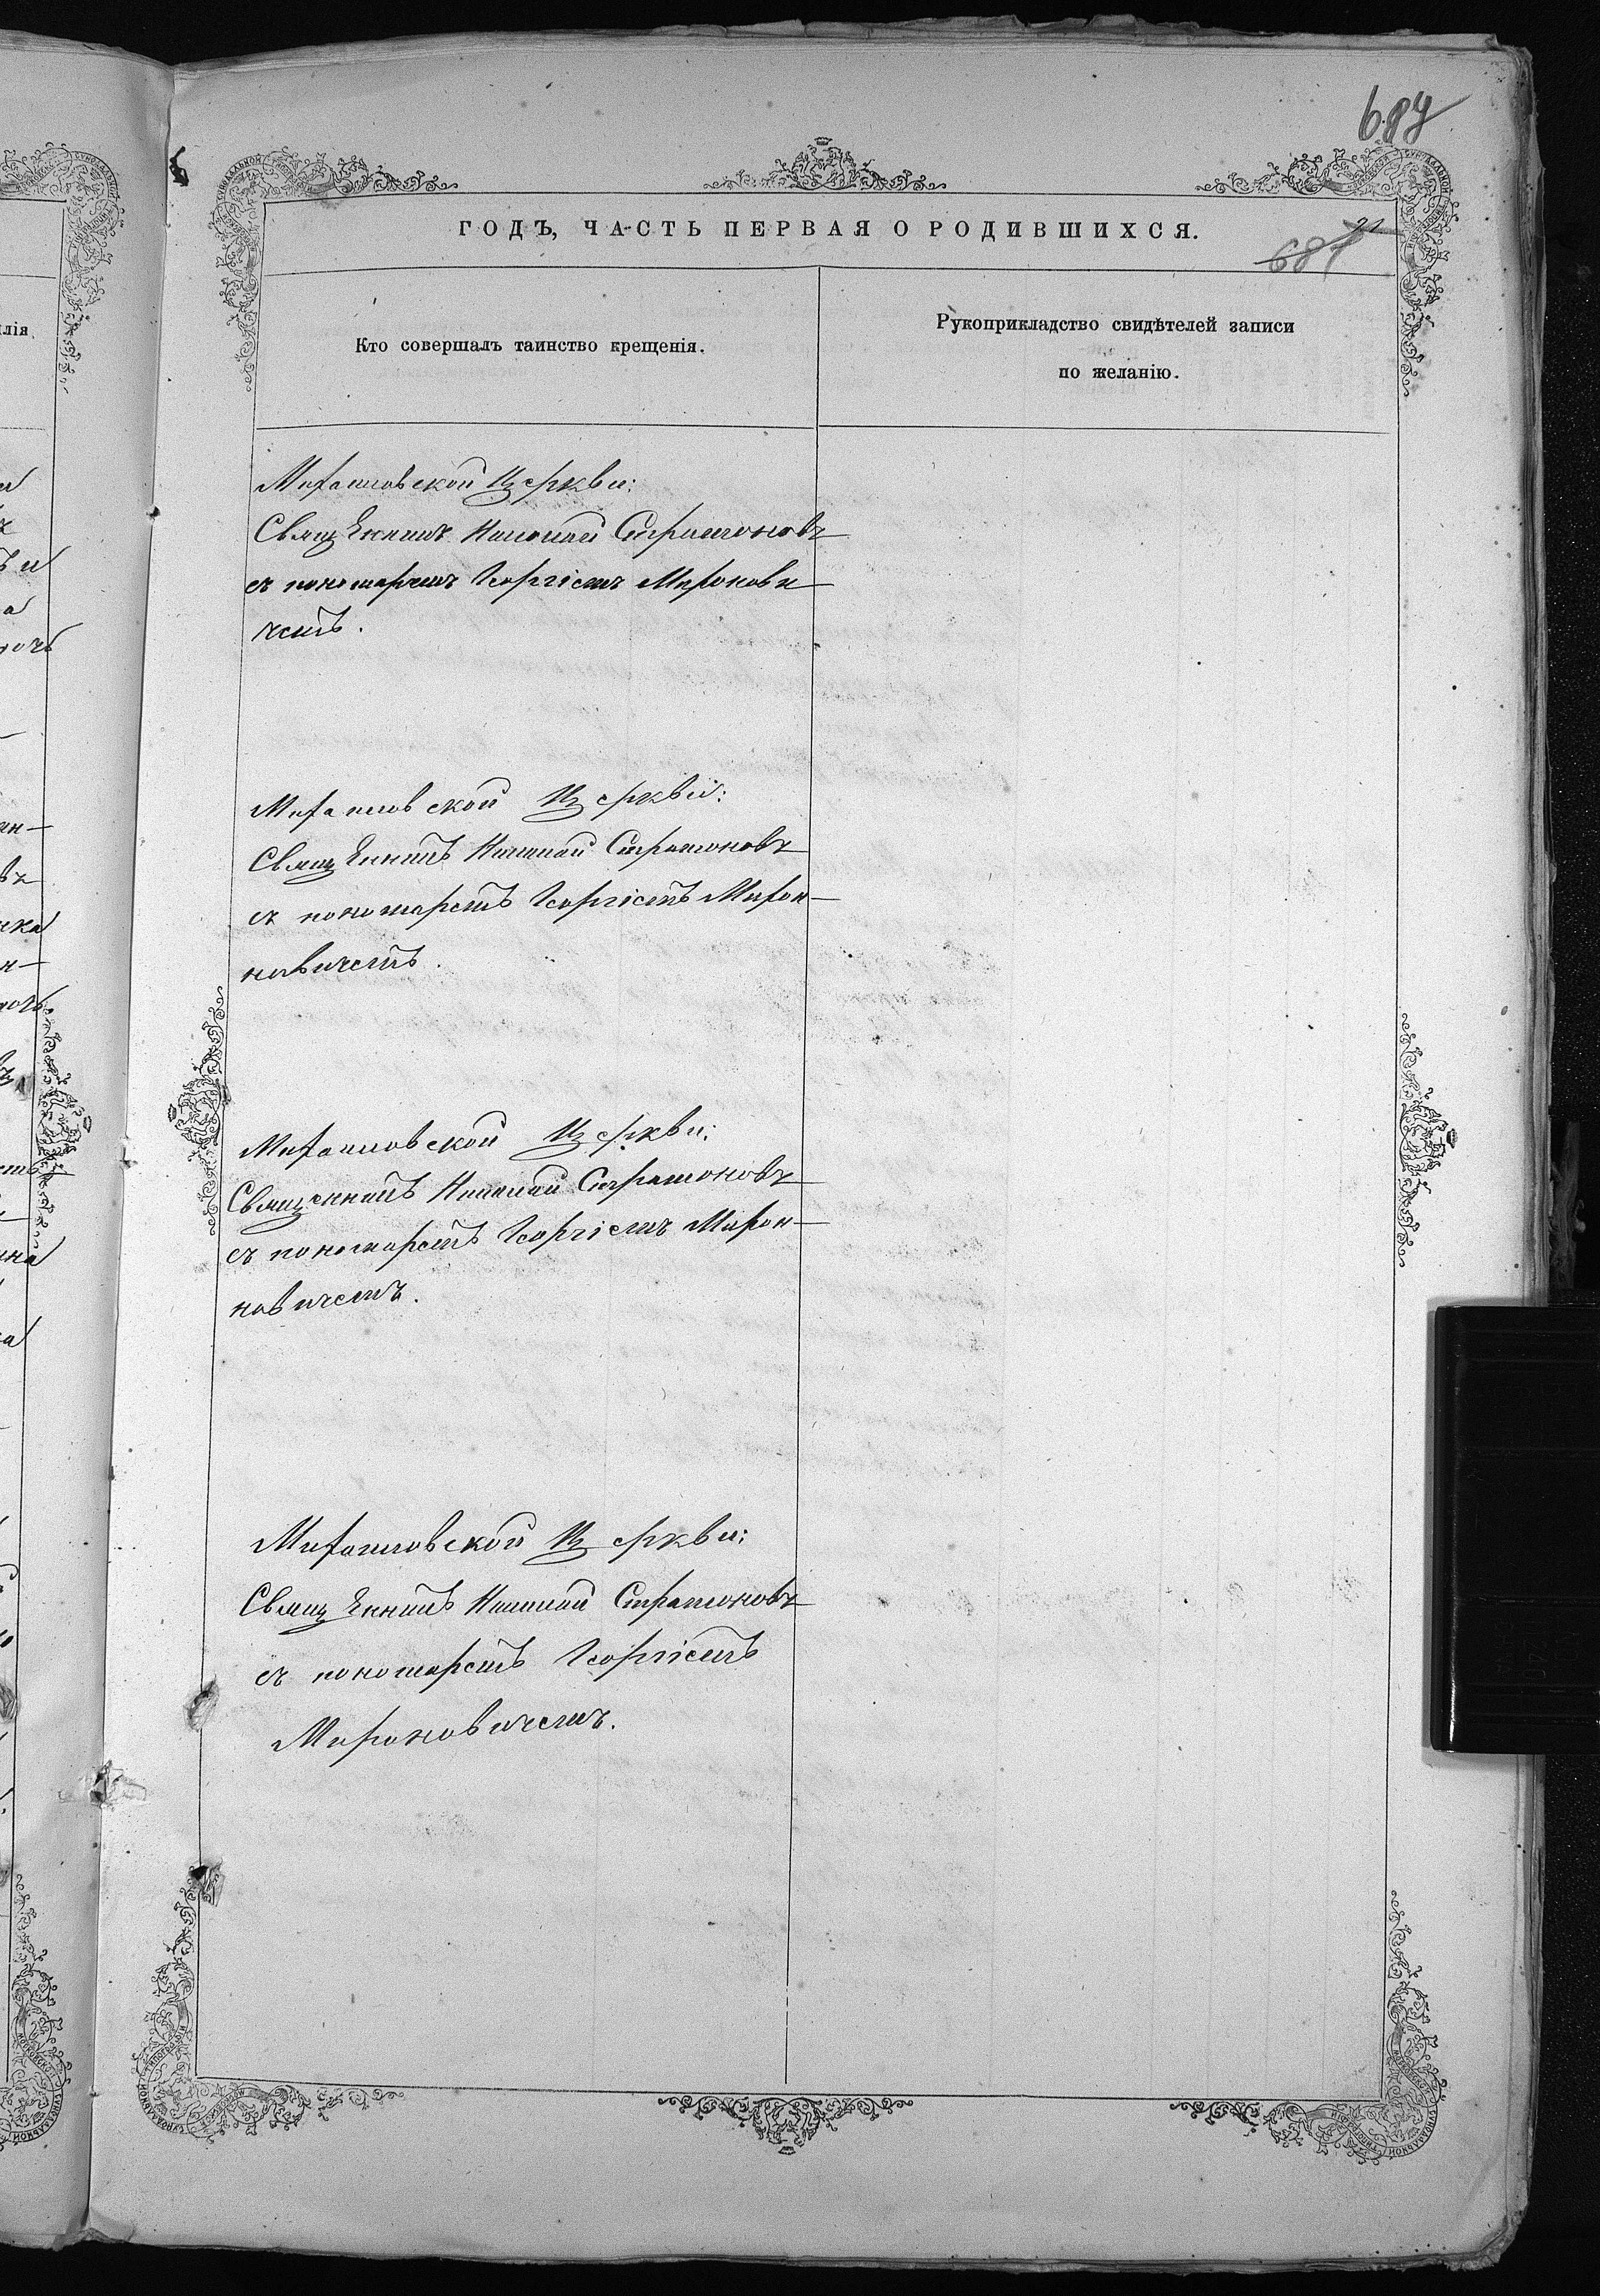 687
ГОДЪ, ЧАСТЬ ПЕРВАЯ О РОДИВШИХСЯ.
21
687
Кто совершалъ таинство крещенія.
Рукоприкладство свидѣтелей записи
по желанію.
Михаиловской Церкви:
Священникъ Николай Стратоновъ
съ пономаремъ Георгіемъ Миронови
чемъ.
Михаиловской Церкви:
Священникъ Николай Стратоновъ
съ пономаремъ Георгіемъ Мирон—
новичемъ.
Михаиловской Церкви:
Священникъ Николай Стратоновъ
съ пономаремъ Георгіемъ Мирон—
новичемъ.
Михаиловской Церкви:
Священникъ Николай Стратоновъ
съ пономаремъ Георгіемъ
Мироновичемъ.